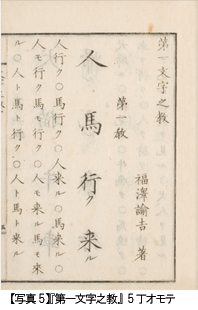 第一文字之教
福澤諭吉 著
第一教
人 馬 行ク 来ル
人行ク○馬行ク○人来ル○馬来ル○
人モ行ク馬モ行ク○人モ来ル馬モ來
ル○人ト馬ト行ク○人ト馬ト来ル
【写真5】『第一文字之教』 5丁オモテ